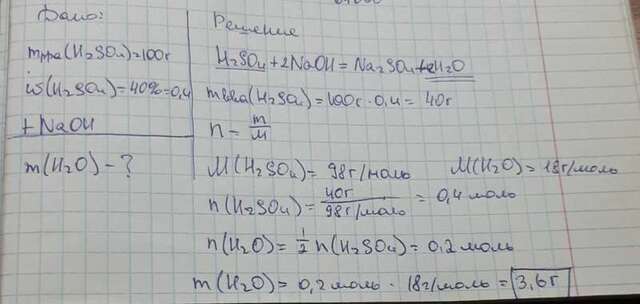 Дано:
mр-ра(H₂SO₄)=100г
ω(H₂SO₄)=40%=0,4
+NaOH
m(H₂O)-?
Решение
H₂SO₄+2NaOH=Na₂SO₄+2H₂O
mв-ва(H₂SO₄)=100г·0,4=40г
n=m/M
M(H₂SO₄)=98г/моль M(H₂O)=18г/моль
n(H₂SO₄)=40г/98г/моль=0,4моль
n(H₂O)=1/2n(H₂SO₄)=0,2моль
m(H₂O)=0,2моль·18г/моль=3,6г